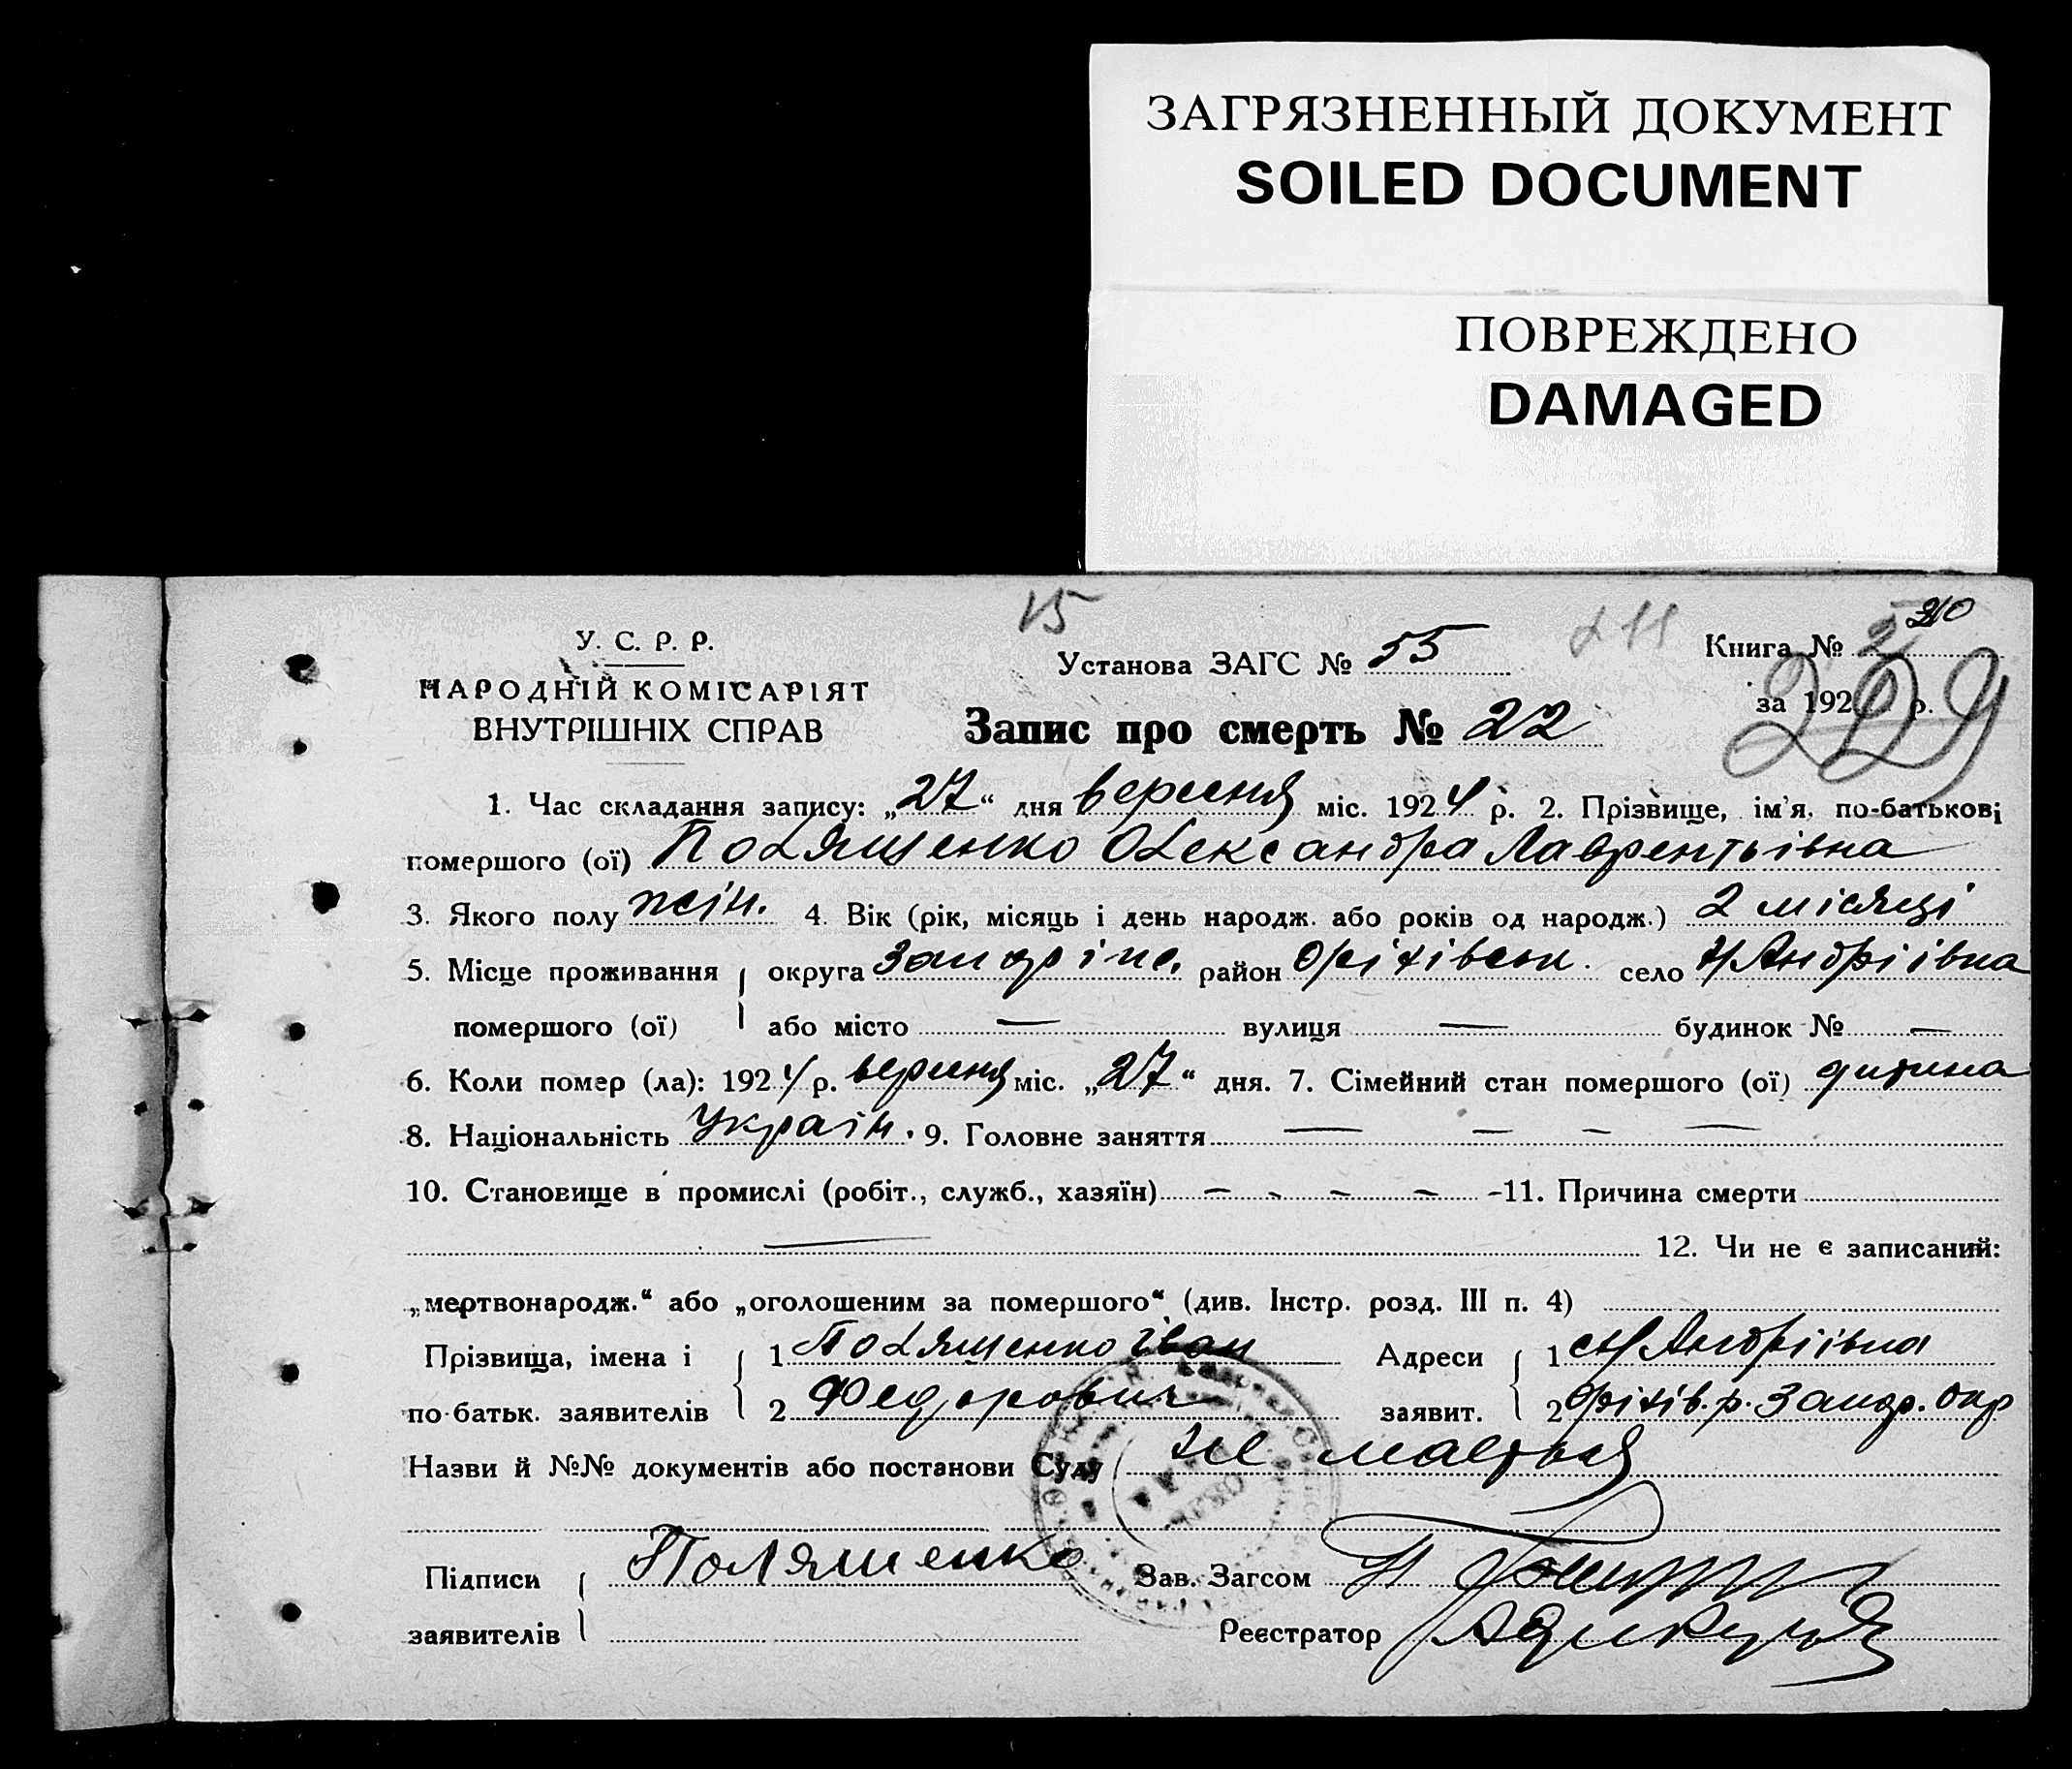 ЗАГРЯЗНЕННЫЙ ДОКУМЕНТ
SOILED DOCUMENT
ПОВРЕЖДЕНО
DAMAGED
15
У. С. Р. Р.
НАРОДНІЙ КОМІСАРІЯТ
ВНУТРІШНІХ СПРАВ
Установа ЗАГС № 55
211
Книга № 2 210
за 192 р.
229
Запис про смерть № 22
1. Час складання запису: „27“ дня вересня міс. 1924 р. 2. Прізвище, ім'я, по-батькові
помершого (ої) Поляшенко Олександра Лаврентьівна
3. Якого полу жін. 4. Вік (рік, місяць і день народж. або років од народж.) 2 місяці
5. Місце проживання округа район Оріхівськ. село Н Андріівна
помершого (ої) або місто — вулиця — будинок № —
6. Коли помер (ла): 1924 р. вересня міс. „27“ дня. 7. Сімейний стан помершого (ої) дитина
8. Національність Украін. 9. Головне заняття — — — —
10. Становище в промислі (робіт., служб., хазяїн) — — — — 11. Причина смерти
— 12. Чи не є записаний:
„мертвонародж.“ або „оголошеним за помершого“ (див. Інстр. розд. III п. 4)
Прізвища, імена і 1 Поляшенко Іван Адреси 1 с Н Андріівна
по-батьк. заявителів 2 Федорович заявит. 2 Оріхів. р. Запор. окр
Назви й №№ документів або постанови Суду не маеться
Підписи Поляшенко Зав. Загсом
заявителів Реєстратор